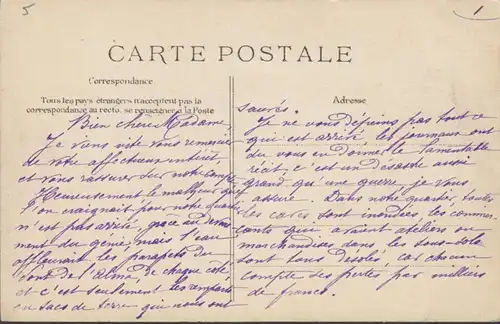 5
1
CARTE POSTALE
Correspondance
Tous les pays étrangers n'acceptent pas la
correspondance au recto. se renseigner à la Poste
Adresse
Bien chère Madame,
Je viens vite vous remercier
de votre affectueux intérêt
et vous rassurer sur notre compte
Heureusement le malheur que
l'on craignait pour notre quartier
n'est pas arrivé, grâce au dévoue-
ment du génie, mais l'eau
affleurait les parapets du
Pont de l'Alma, de chaque côté
et c'est seulement les remparts
en sacs de terre qui nous ont
sauvés.
Je ne vous dépeins pas tout ce
qui est arrivé les journaux ont
du vous en donner le lamentable
récit, c'est un désastre aussi
grand qui une guerre, je vous
assure. Dans notre quartier, toutes
les caves sont inondées, les commer-
çants qui avaient ateliers ou
marchandises dans les sous-sols
sont tous désolés, car chacun
compte des pertes par milliers
de francs.